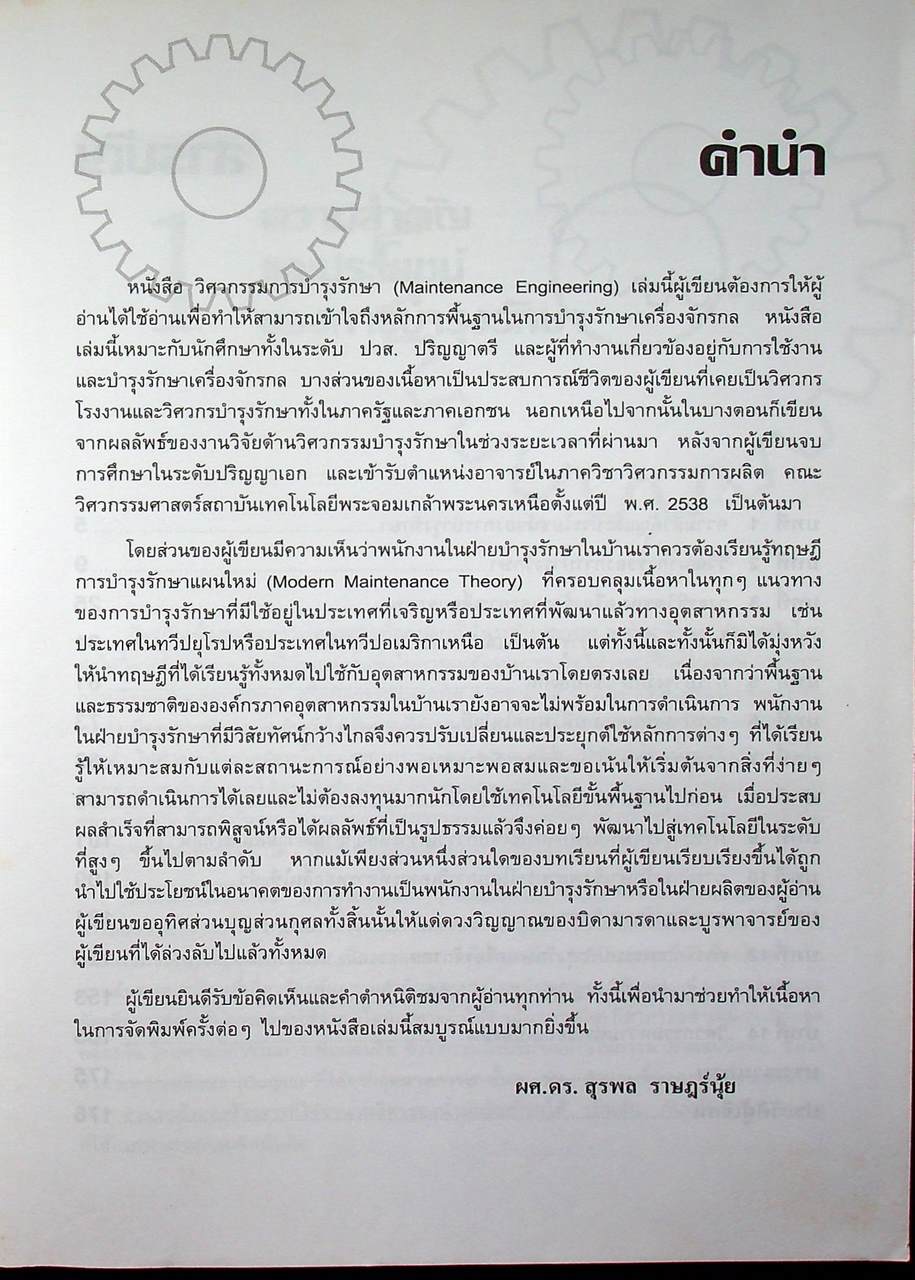 คำนำ
หนังสือ วิศวกรรมการบำรุงรักษา (Maintenance Engineering) เล่มนี้ผู้เขียนต้องการให้ผู้
อ่านได้ใช้อ่านเพื่อทำให้สามารถเข้าใจถึงหลักการพื้นฐานในการบำรุงรักษาเครื่องจักรกล หนังสือ
เล่มนี้เหมาะกับนักศึกษาทั้งในระดับ ปวส. ปริญญาตรี และผู้ที่ทำงานเกี่ยวข้องอยู่กับการใช้งาน
และบำรุงรักษาเครื่องจักรกล บางส่วนของเนื้อหาเป็นประสบการณ์ชีวิตของผู้เขียนที่เคยเป็นวิศวกร
โรงงานและวิศวกรบำรุงรักษาทั้งในภาครัฐและภาคเอกชน นอกเหนือไปจากนั้นในบางตอนก็เขียน
จากผลลัพธ์ของงานวิจัยด้านวิศวกรรมบำรุงรักษาในช่วงระยะเวลาที่ผ่านมา หลังจากผู้เขียนจบ
การศึกษาในระดับปริญญาเอก และเข้ารับตำแหน่งอาจารย์ในภาควิชาวิศวกรรมการผลิต คณะ
วิศวกรรมศาสตร์สถาบันเทคโนโลยีพระจอมเกล้าพระนครเหนือตั้งแต่ปี พ.ศ. 2538 เป็นต้นมา
โดยส่วนของผู้เขียนมีความเห็นว่าพนักงานในฝ่ายบำรุงรักษาในบ้านเราควรต้องเรียนรู้ทฤษฎี
การบำรุงรักษาแผนใหม่ (Modern Maintenance Theory) ที่ครอบคลุมเนื้อหาในทุกๆ แนวทาง
ของการบำรุงรักษาที่มีใช้อยู่ในประเทศที่เจริญหรือประเทศที่พัฒนาแล้วทางอุตสาหกรรม เช่น
ประเทศในทวีปยุโรปหรือประเทศในทวีปอเมริกาเหนือ เป็นต้น แต่ทั้งนี้และทั้งนั้นก็มิได้มุ่งหวัง
ให้นำทฤษฎีที่ได้เรียนรู้ทั้งหมดไปใช้กับอุตสาหกรรมของบ้านเราโดยตรงเลย เนื่องจากว่าพื้นฐาน
และธรรมชาติขององค์กรภาคอุตสาหกรรมในบ้านเรายังอาจจะไม่พร้อมในการดำเนินการ พนักงาน
ในฝ่ายบำรุงรักษาที่มีวิสัยทัศน์กว้างไกลจึงควรปรับเปลี่ยนและประยุกต์ใช้หลักการต่างๆ ที่ได้เรียน
รู้ให้เหมาะสมกับแต่ละสถานะการณ์อย่างพอเหมาะพอสมและขอเน้นให้เริ่มต้นจากสิ่งที่ง่ายๆ
สามารถดำเนินการได้เลยและไม่ต้องลงทุนมากนักโดยใช้เทคโนโลยีขั้นพื้นฐานไปก่อน เมื่อประสบ
ผลสำเร็จที่สามารถพิสูจน์หรือได้ผลลัพธ์ที่เป็นรูปธรรมแล้วจึงค่อยๆ พัฒนาไปสู่เทคโนโลยีในระดับ
ที่สูงๆ ขึ้นไปตามลำดับ หากแม้เพียงส่วนหนึ่งส่วนใดของบทเรียนที่ผู้เขียนเรียบเรียงขึ้นได้ถูก
นำไปใช้ประโยชน์ในอนาคตของการทำงานเป็นพนักงานในฝ่ายบำรุงรักษาหรือในฝ่ายผลิตของผู้อ่าน
ผู้เขียนขออุทิศส่วนบุญส่วนกุศลทั้งสิ้นนั้นให้แด่ดวงวิญญาณของบิดามารดาและบูรพาจารย์ของ
ผู้เขียนที่ได้ล่วงลับไปแล้วทั้งหมด
ผู้เขียนยินดีรับข้อคิดเห็นและคำตำหนิติชมจากผู้อ่านทุกท่าน ทั้งนี้เพื่อนำมาช่วยทำให้เนื้อหา
ในการจัดพิมพ์ครั้งต่อๆ ไปของหนังสือเล่มนี้สมบูรณ์แบบมากยิ่งขึ้น
ผศ.ดร. สุรพล ราษฎร์นุ้ย